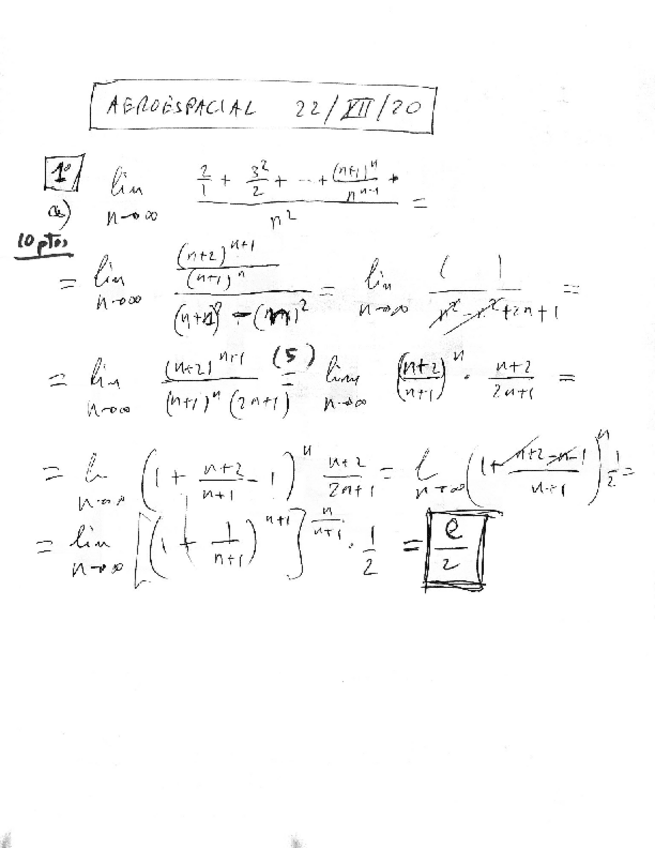 AEROESPACIAL 22/XII/20
1º lim n→∞ (2/1 + 3²/2 + ... + (n+1)ⁿ/nⁿ⁻¹)/n² =
a)
10 ptos
= lim n→∞ ((n+2)ⁿ⁺¹/(n+1)ⁿ)/((n+1)² - (n)²) = lim n→∞ ( )/(n² - n² + 2n + 1) =
= lim n→∞ (n+2)ⁿ⁺¹/((n+1)ⁿ (2n+1)) (5) = lim n→∞ ((n+2)/(n+1))ⁿ · (n+2)/(2n+1) =
= l n→∞ (1 + (n+2)/(n+1) - 1)ⁿ (n+2)/(2n+1) = l n→∞ (1 + (n+2-n-1)/(n+1))ⁿ 1/2 =
= lim n→∞ [(1 + 1/(n+1))ⁿ⁺¹]^(n/(n+1)) · 1/2 = e/2